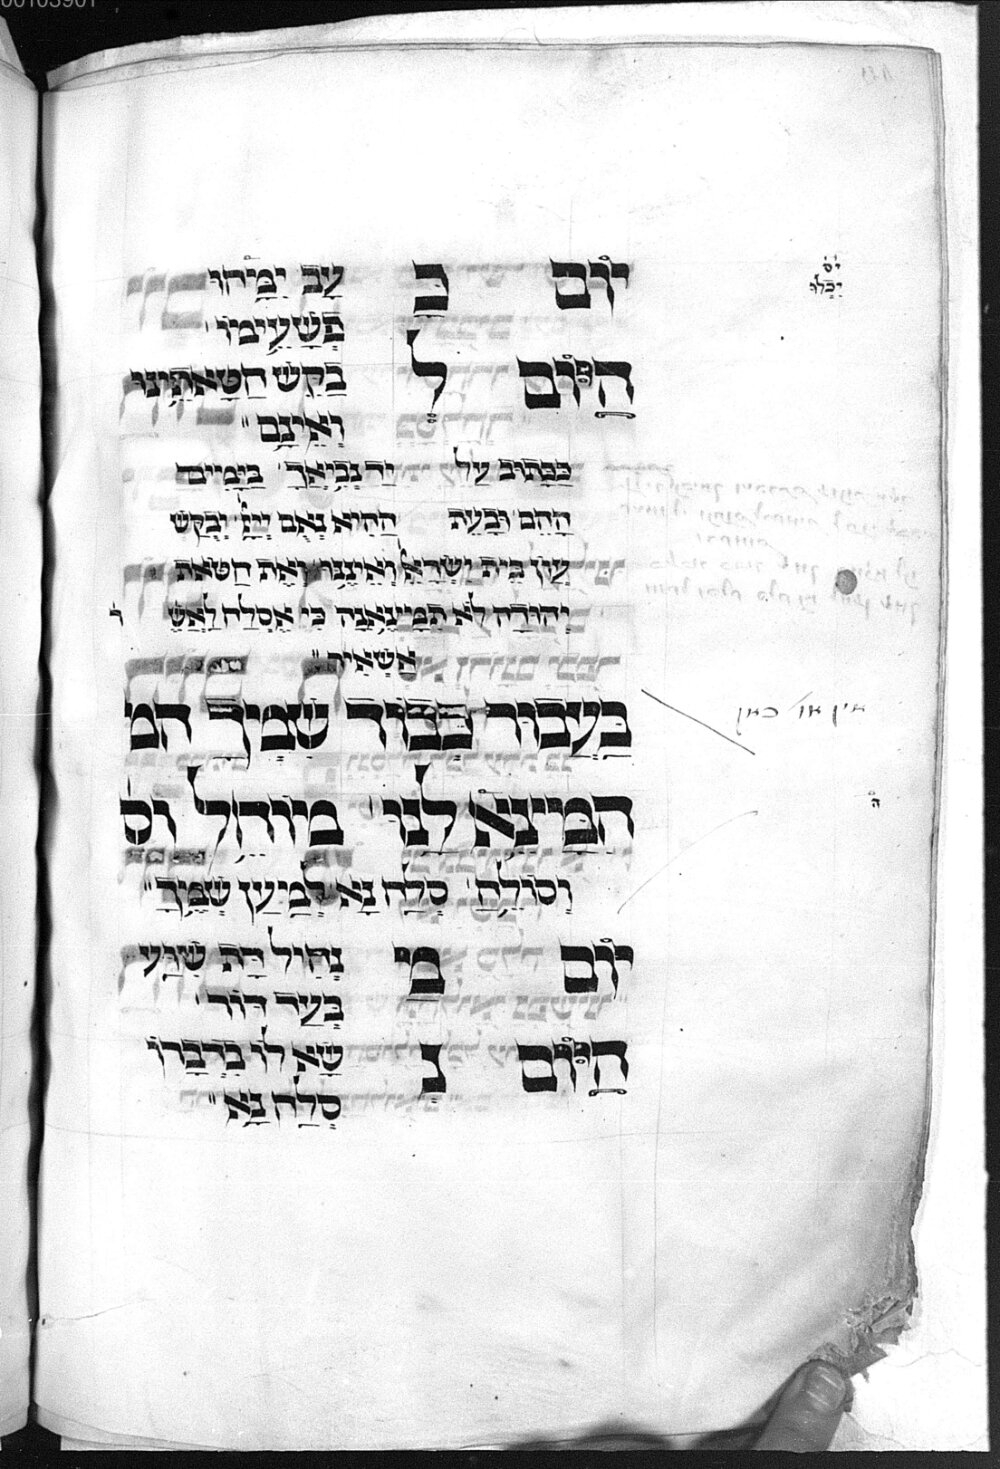 יוֹם כָּ עָב יִמָּחוּ
פְּשָׁעֵימוֹ׳
הַיּוֹם לְ בַקֵּשׁ חַטֹּאתֵינוּ
וְאֵינָם״
כַּכָּתוּב עַל יַד נְבִיאָךְ׳ בַּיָּמִים
הָהֵם וּבָעֵת הַהִיא נְאֻם יְיָ׳ יְבֻקַּשׁ
עֲוֹן בֵּית יִשְׂרָאֵל וְאֵינֶנּוּ׳ וְאֶת חַטֹּאת
יְהוּדָה לֹא תִמָּצֶאנָה כִּי אֶסְלַח לַאֲשֶׁ
אַשְׁאִיר״
בַּעֲבוּר כְּבוֹד שִׁמְךָ המ
הִמָּצֵא לָנוּ׳ מוֹחֵל וס
וְסוֹלֵחַ׳ סְלַח נָא לְמַעַן שְׁמֶךָ״
יוֹם מִי נָחִיל דָּת שַׁוְעִי
בְּעַד דּוֹר׳
הַיּוֹם נָ שָׂא לוֹ בְדָבְרוֹ
סְלַח נָא״
יס׳
יְכַלּוּ
אין או׳ כאן
ה׳